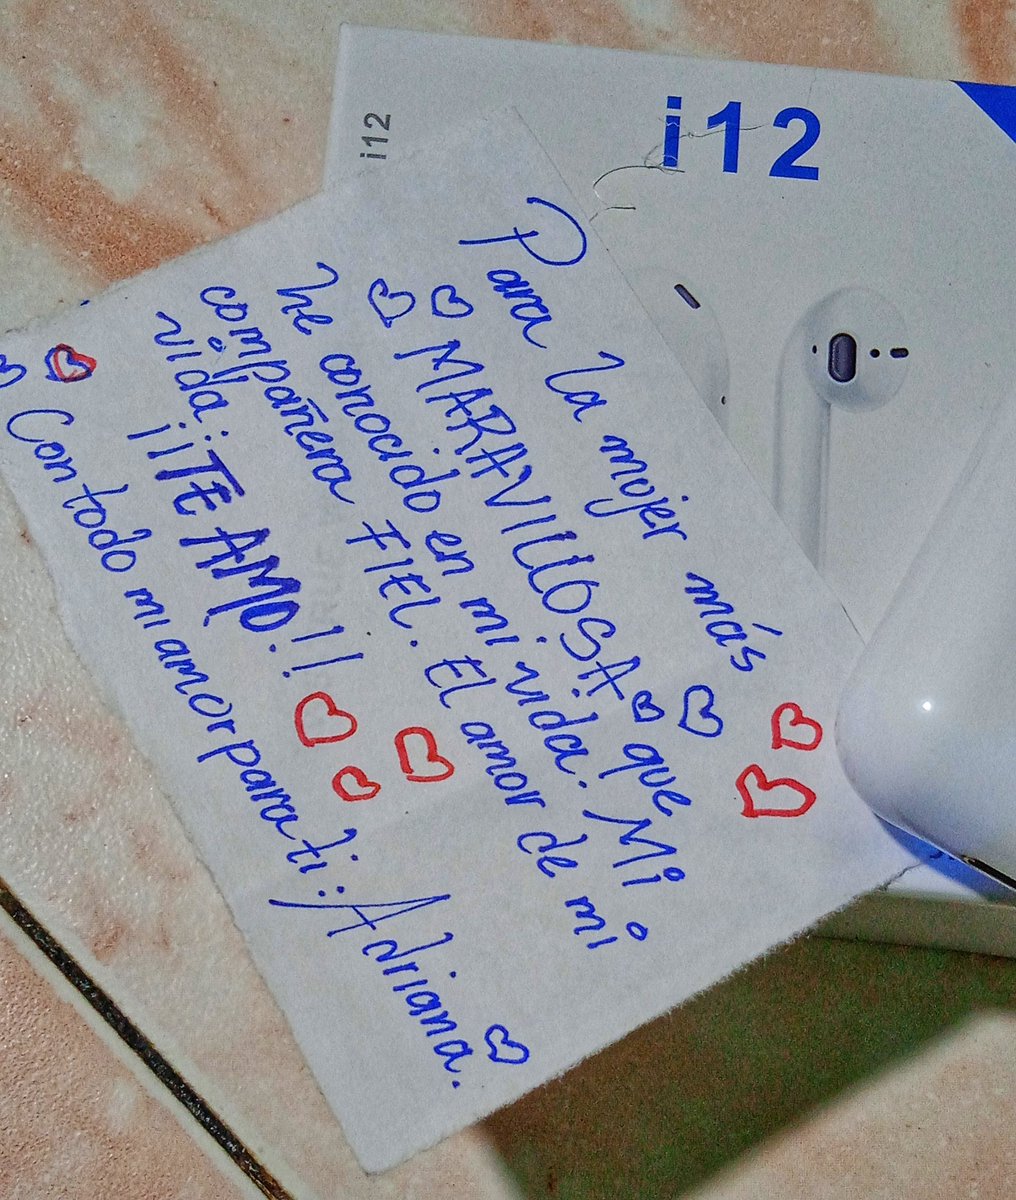 i12
i12
Para la mujer más
MARAVILLOSA que
he conocido en mi vida. Mi
compañera FIEL. El amor de mi
vida. ¡¡TE AMO!!
Con todo mi amor para ti: Adriana.